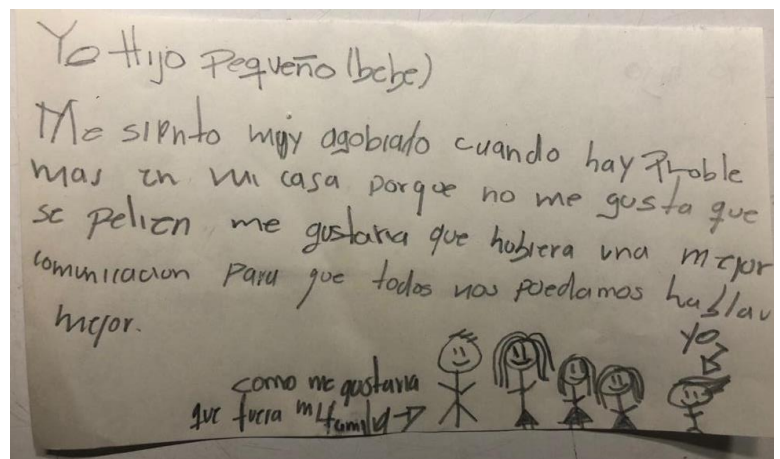 Yo Hijo Pequeño (bebe)
Me siento muy agobiado cuando hay Proble
mas en mi casa porque no me gusta que
se pelien me gustaria que hubiera una mejor
comunicacion Para que todos nos puedamos hablar
mejor.
yo
como me gustaria
que fuera mi familia →